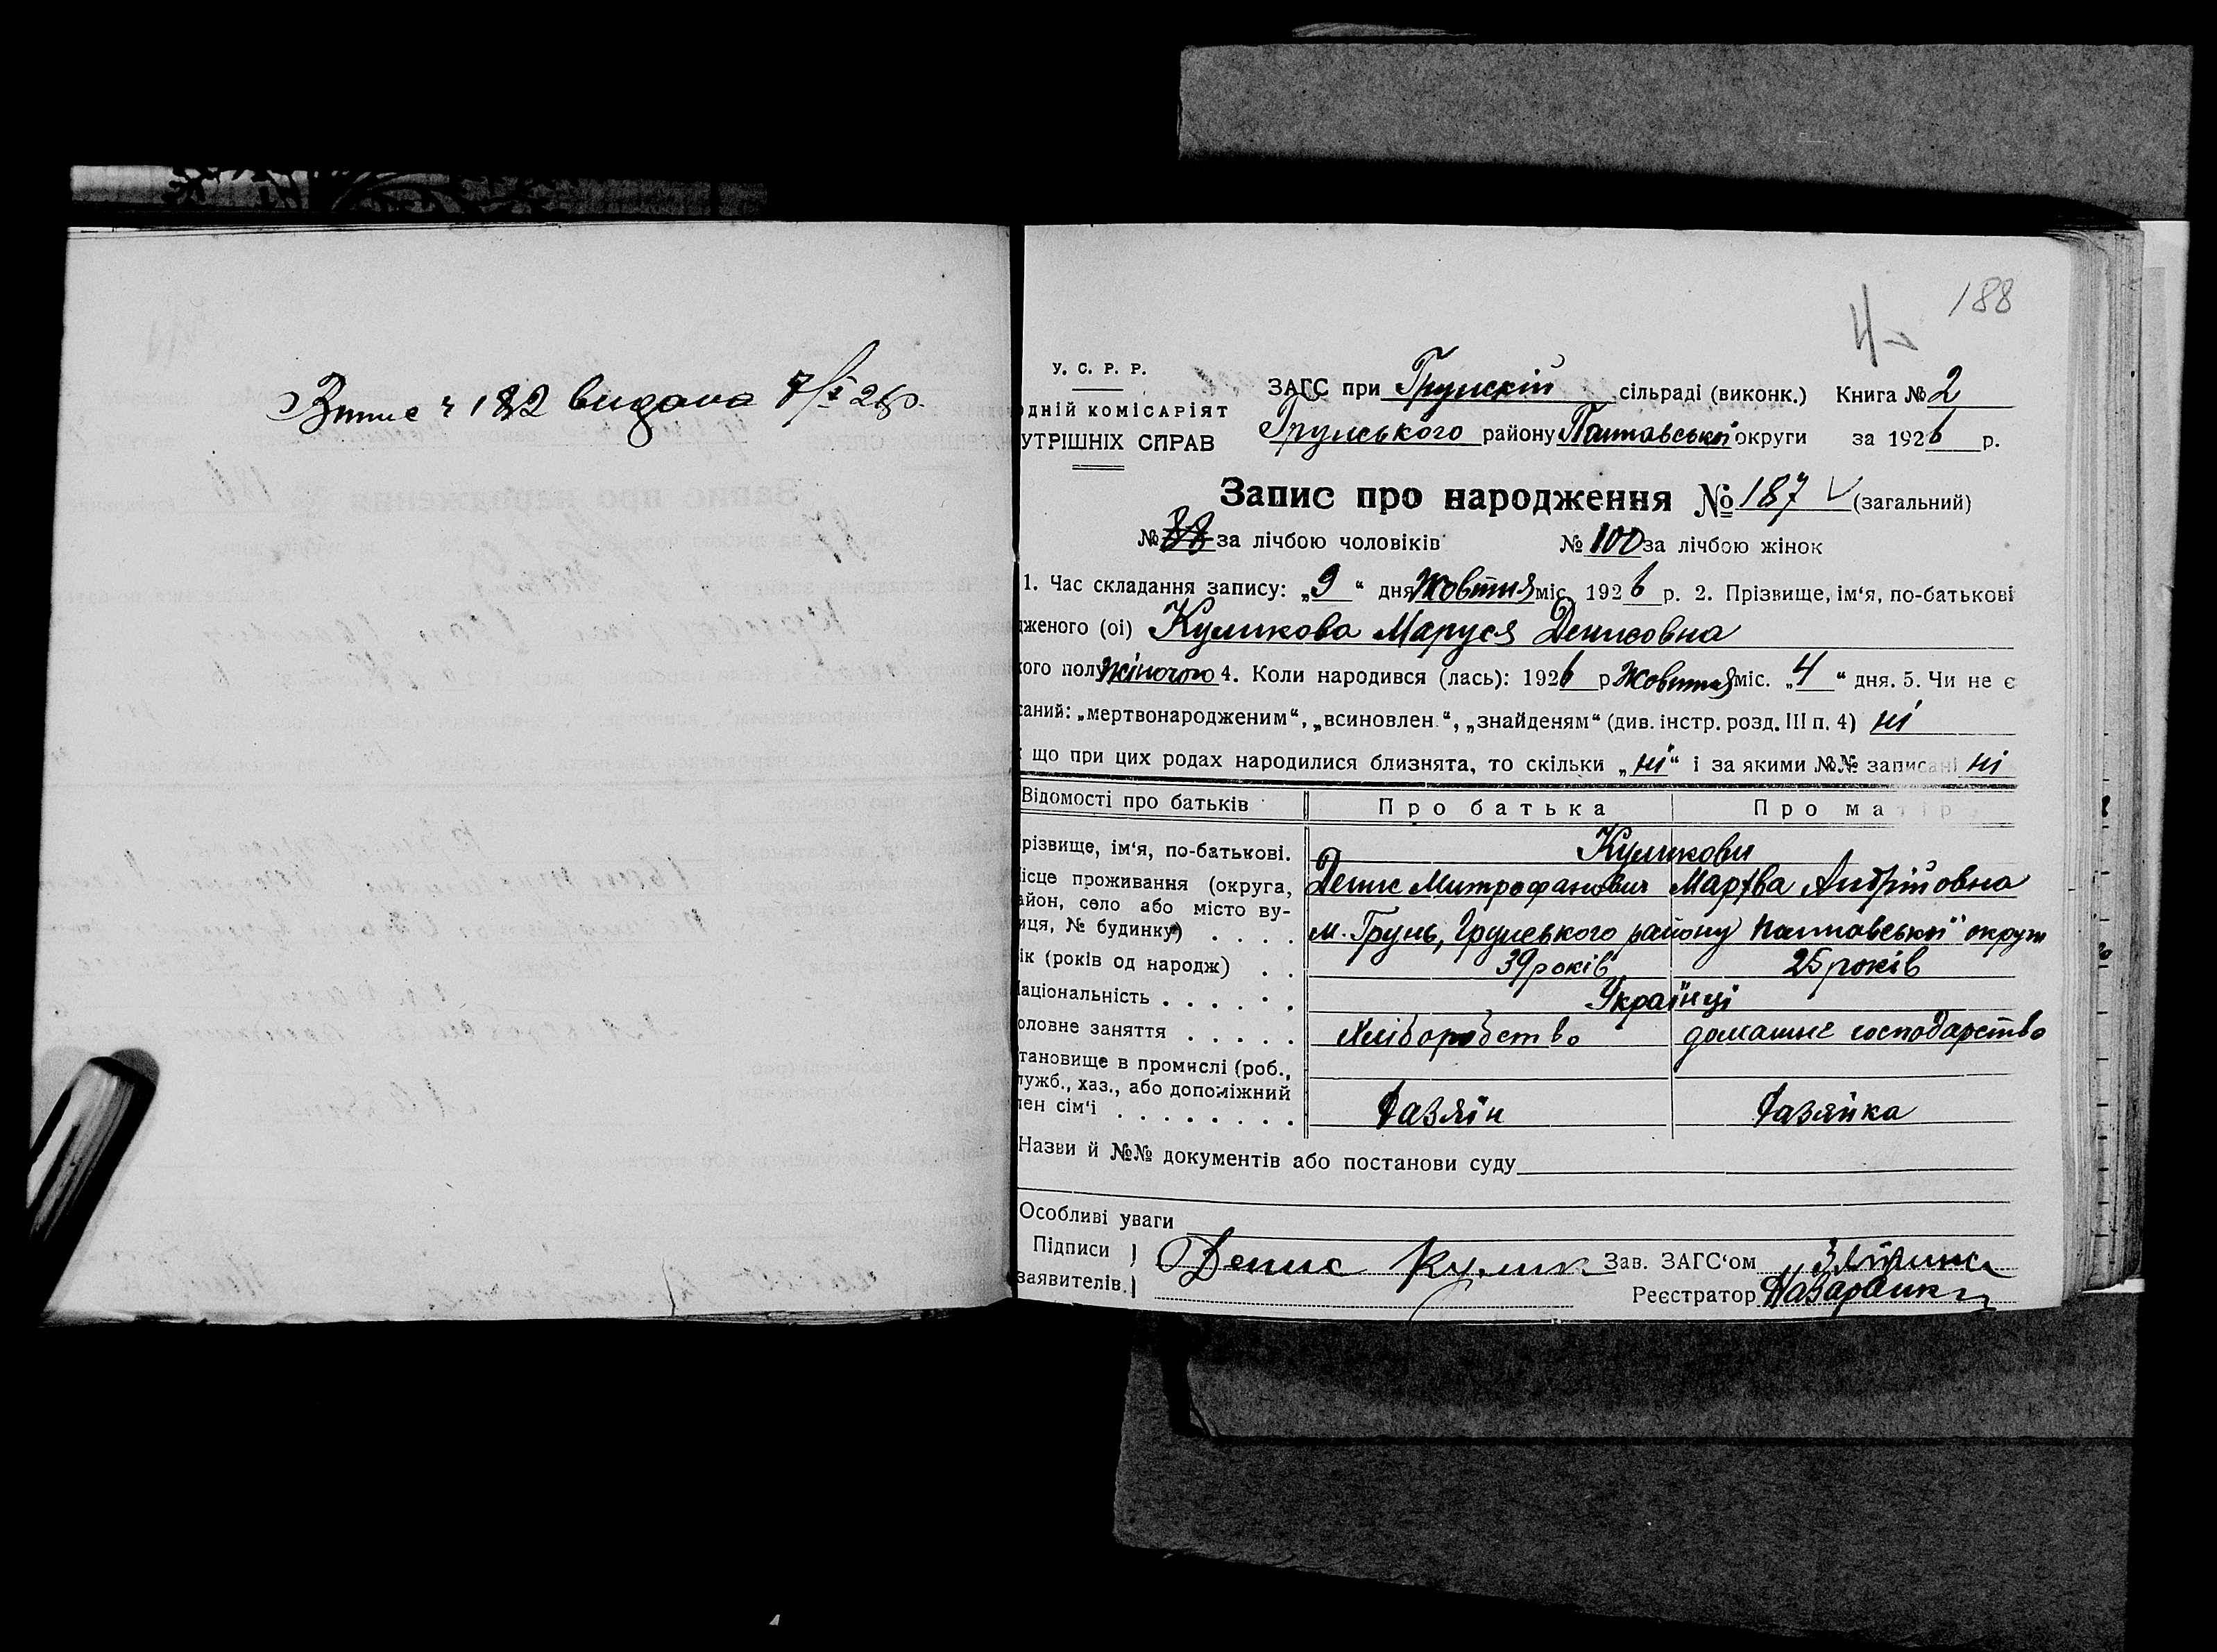 Витис ч 182 видана
188
У. С. Р. Р.
ЗАГС при Грунскій сільраді (виконк.) Книга № 2
дній комісаріят
Грунського району Полтавської округи за 1926 р.
УТРІШНІХ СПРАВ
Запис про народження № 187 (загальний)
№ за лічбою чоловіків № 100 за лічбою жінок
1. Час складання запису: „9“ дня Жовтня міс. 1926 р. 2. Прізвище, ім‘я, по-батькові
дженого (ої) Куликова Маруся Денисовна
кого полу жіночого 4. Коли народився (лась): 1926 р Жовтня міс. „4“ дня. 5. Чи не є
саний: „мертвонародженим“, „всиновлен.“, „знайденям“ (див. інстр. розд. III п. 4) ні
що при цих родах народилися близнята, то скільки „ні“ і за якими №№ записані ні
Відомості про батьків Про батька Про матір
різвище, ім‘я, по-батькові. Куликови
ісце проживання (округа, Денис Митрофанович Мартва Андрійовна
айон, село або місто ву-
иця, № будинку) . . . . м. Грунь, Грунського району Полтавської округи
ік (років од народж) . . 39 років 25 років
аціональність . . . . . Українці
оловне заняття . . . . . Хліборобство домашнє господарство
тановище в промислі (роб.,
лужб., хаз., або допоміжний
лен сім‘ї . . . . . . . . Хазяїн Хазяйка
Назви й №№ документів або постанови суду
Особливі уваги
Підписи Денис Кулик Зав. ЗАГС‘ом
заявителів. Реєстратор